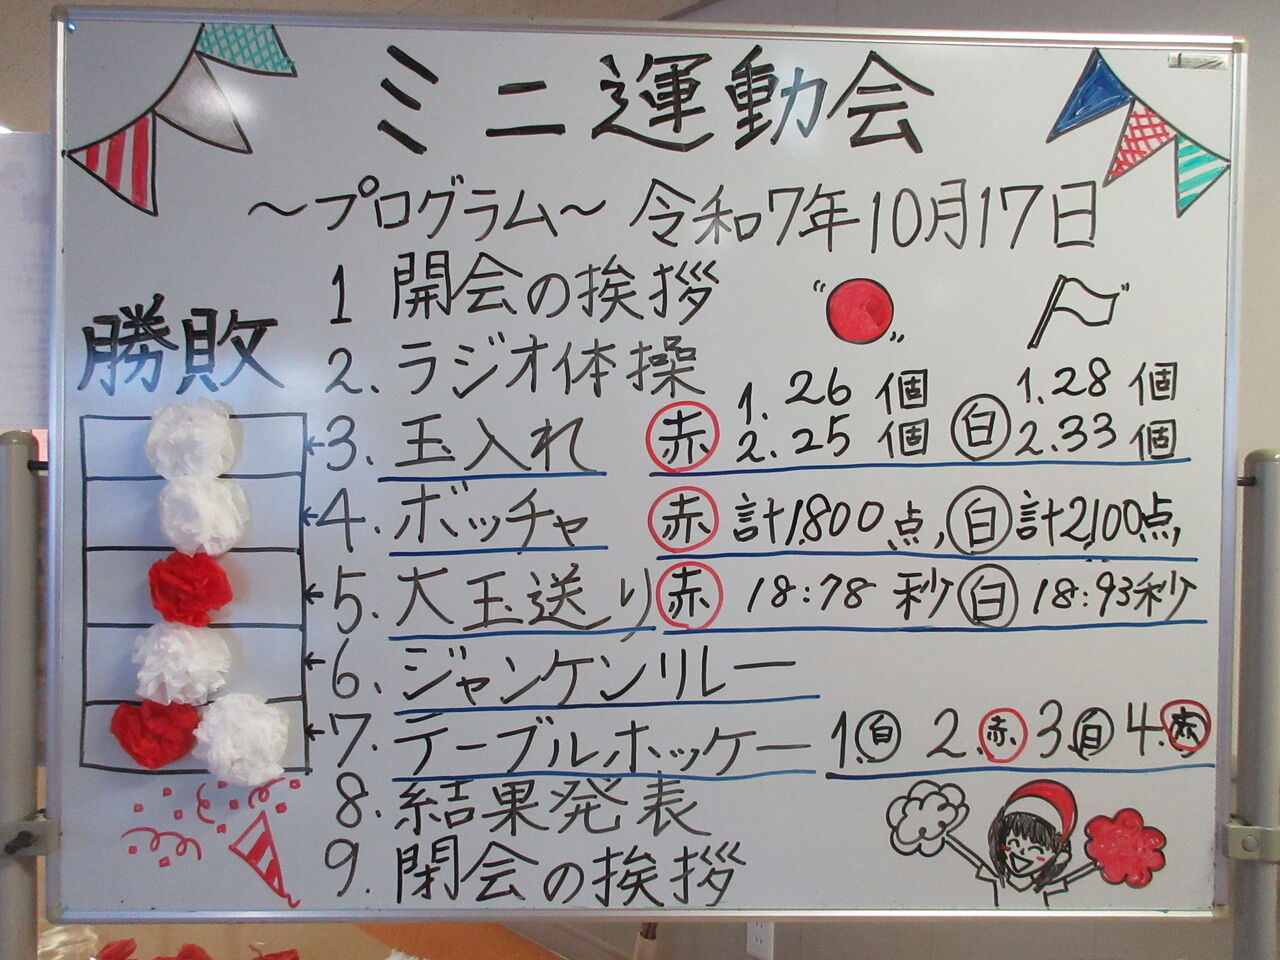 ミニ運動会
～プログラム～ 令和7年10月17日
勝敗
1 開会の挨拶
2. ラジオ体操
3. 玉入れ 赤 1. 26個 白 1. 28個
2. 25個 2. 33個
4. ボッチャ 赤 計1,800点, 白 計2,100点,
5. 大玉送り 赤 18:78秒 白 18:93秒
6. ジャンケンリレー
7. テーブルホッケー 1. 白 2. 赤 3. 白 4. 赤
8. 結果発表
9. 閉会の挨拶